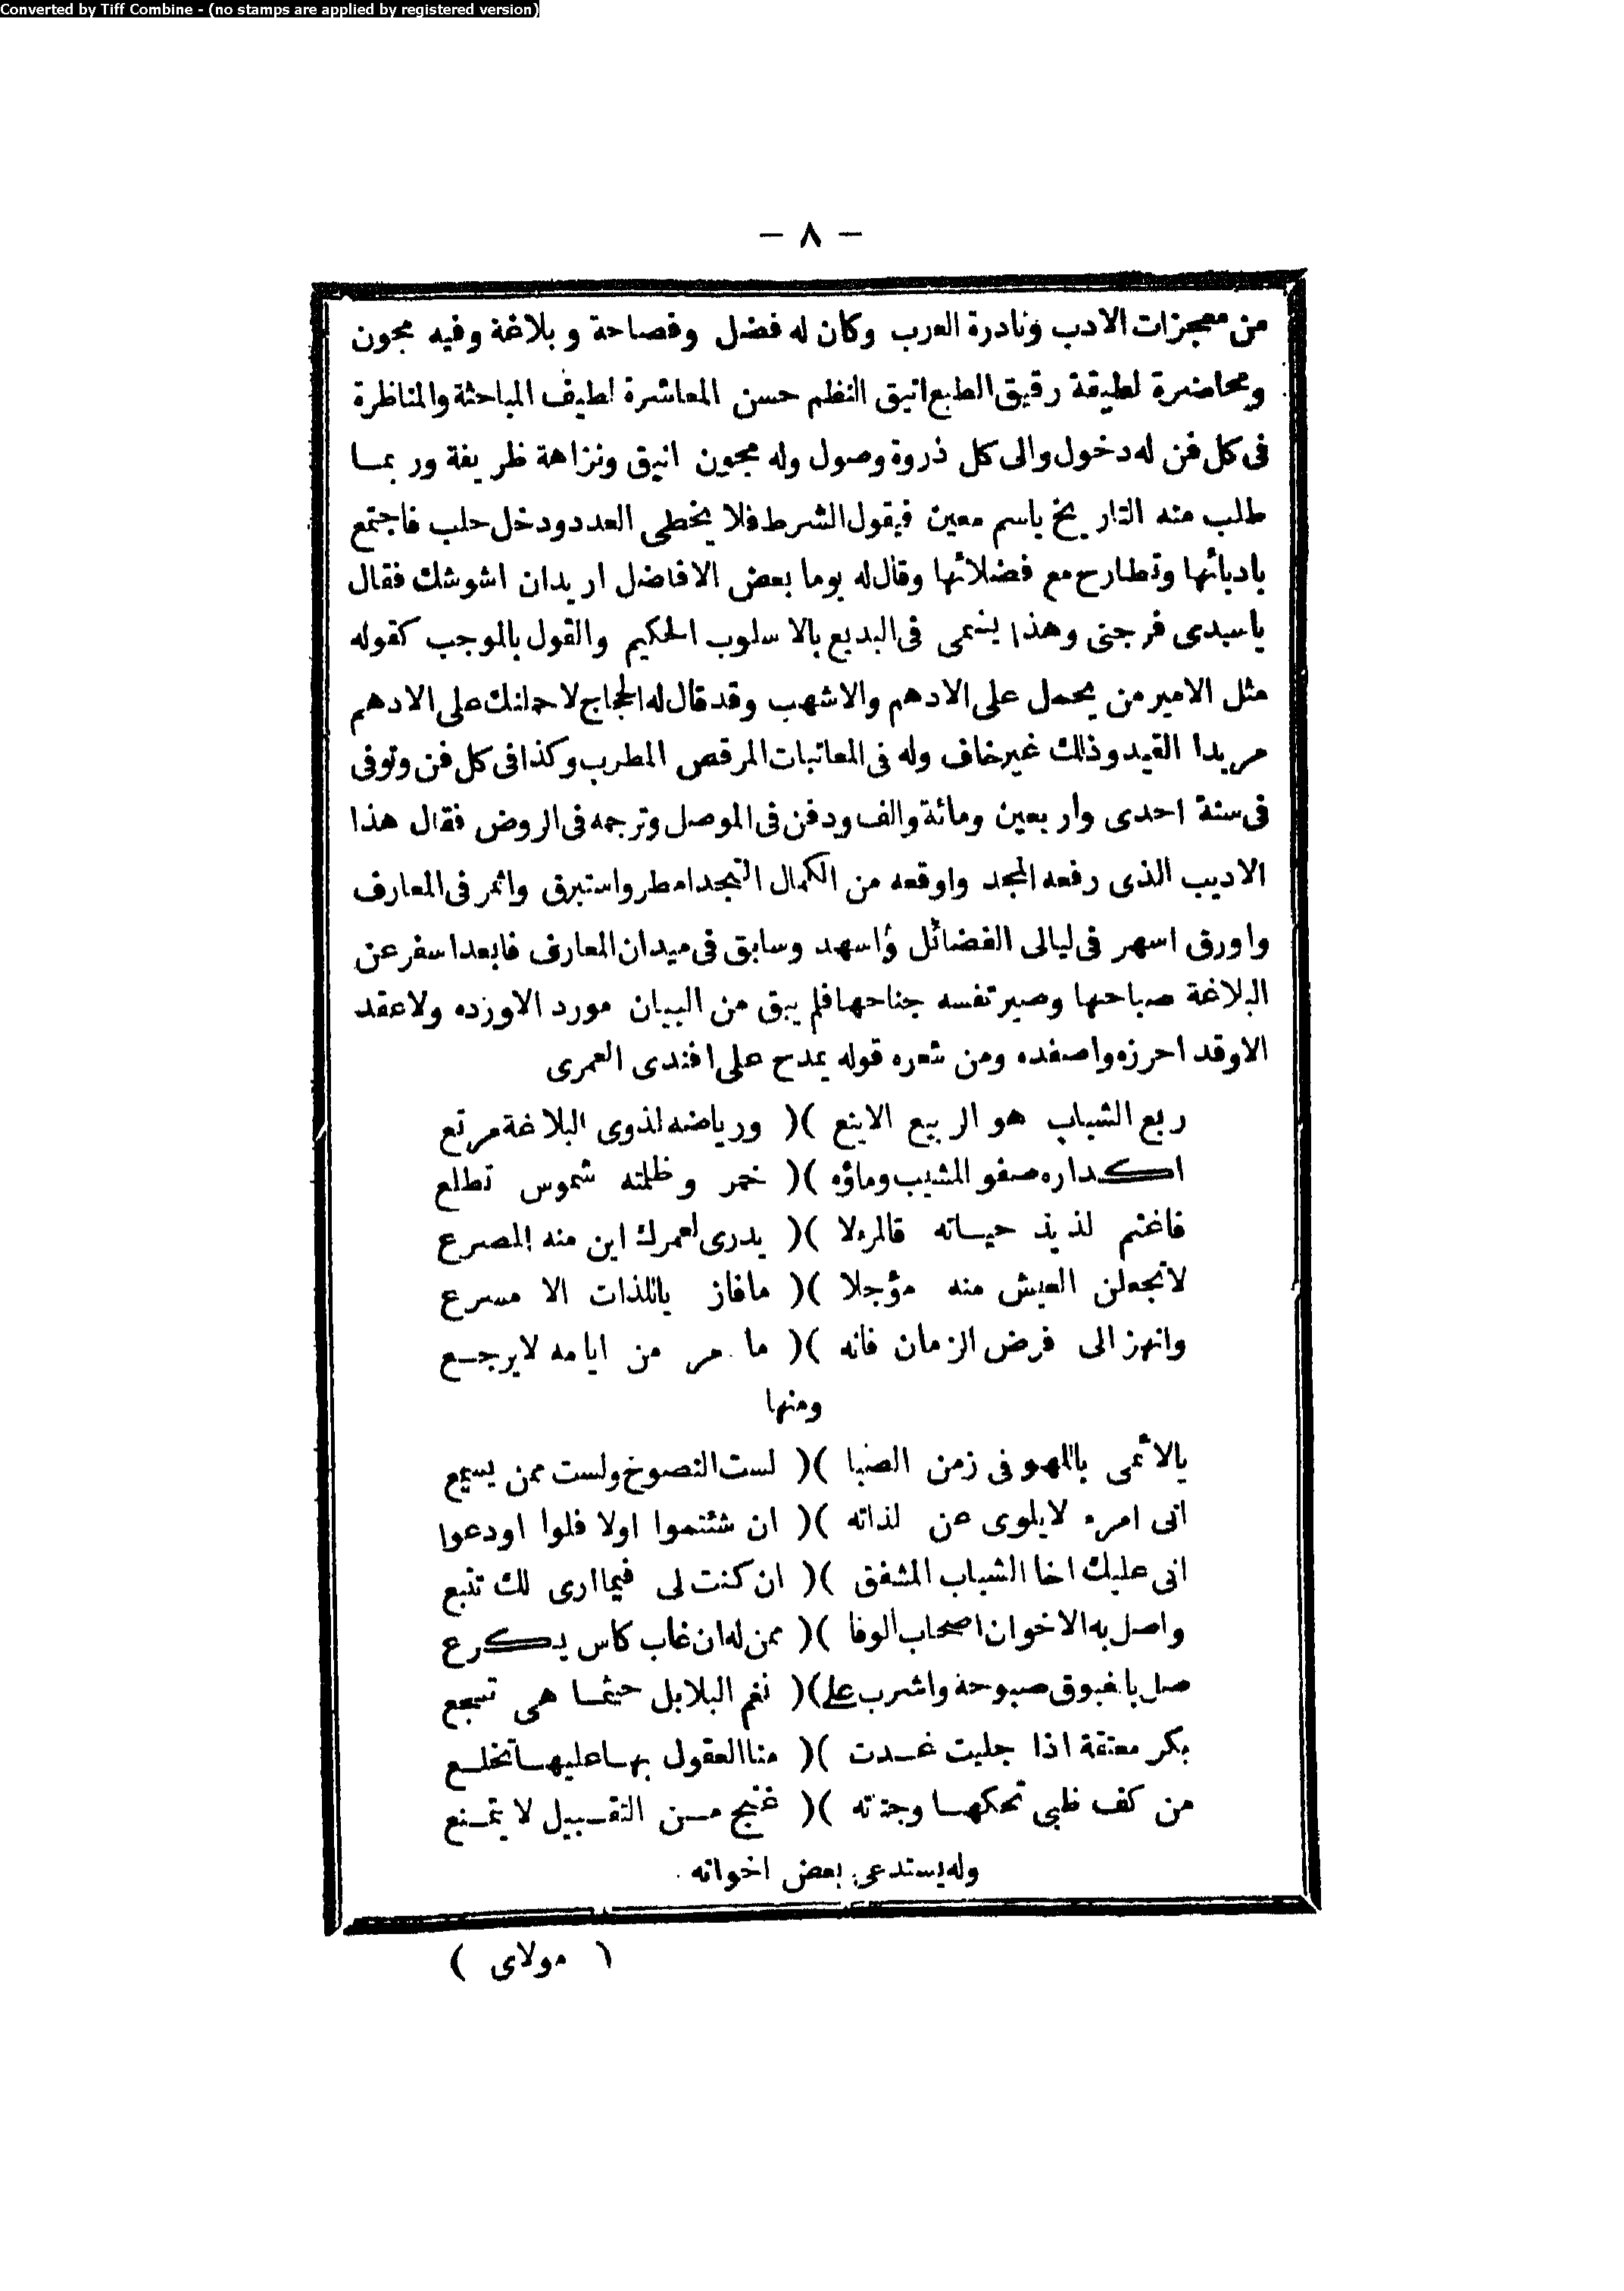 Converted by Tiff Combine - (no stamps are applied by registered version)
— ٨ —
من معجزات الادب ونادرة العرب وكان له فضل وفصاحة وبلاغة وفيه مجون
ومحاضرة لطيفة رقيق الطبع انيق النظم حسن المعاشرة لطيف المباحثة والمناظرة
فى كل فن له دخول والى كل ذروة وصول وله مجون انيق ونزاهة ظريفة وربمـا
طلب منه التاريخ باسم معين فيقول الشرط فلا يخطى العدد ودخل حلب فاجتمع
بادبائها وتطارح مع فضلائها وقال له يوما بعض الافاضل اريدان اشوشك فقال
ياسيدى فرجنى وهذا يسمى فى البديع بالاسلوب الحكيم والقول بالموجب كقوله
مثل الامير من يحمل على الادهم والاشهب وقد قال له الحجاج لاحملنك على الادهم
مريدا القيد وذلك غير خاف وله فى المعاتبات المرقص المطرب وكذا فى كل فن وتوفى
فى سنة احدى واربعين ومائة والف ودفن فى الموصل وترجمه فى الروض فقال هذا
الاديب الذى رفعه المجد واوقعه من الكمال النجد امطر واستبرق واثمر فى المعارف
واورق اسهر فى ليالى الفضائل واسهد وسابق فى ميدان المعارف فابعد اسفر عن
البلاغة صباحها وصير نفسه جناحها فلم يبق من البيان مورد الاوزده ولا عقد
الاوقد احرزه واصفده ومن شعره قوله يمدح على افندى العمرى
ربع الشباب هو الربيع الاينع )( ورياضه لذوى البلاغة مرتع
اكداره صفو المشيب وماؤه )( خمر وظلمته شموس تطلع
فاغتم لذيذ حيـاته قالمرءلا )( يدرى لعمرك اين منه المصرع
لاتجعلن العيش منه مؤجلا )( مافاز باللذات الا مسرع
وانهز الى فرض الزمان فانه )( ما مر من ايامه لايرجـع
ومنها
يالائمى باللهو فى زمن الصبا )( لست النصوخ ولست ممن يسمع
انى امرء لايلوى عن لذاته )( ان شئتموا اولا فلوا اودعوا
انى عليك اخا الشباب المشفق )( ان كنت لى فيما ارى لك تتبع
واصل به الاخوان اصحاب الوفا )( ممن له ان غاب كاس يكرع
صل بالغبوق صبوحة واشرب على )( نغم البلابل حيثمـا هى تسجع
بكر معتقة اذا جليت غـدت )( منا العقول بهـا عليهـا تخلـع
من كف ظبى تحكهـا وجنته )( غنج مـن التقـبيل لا يتمـنع
وله يستدعى بعض اخوانه
( مولاى )